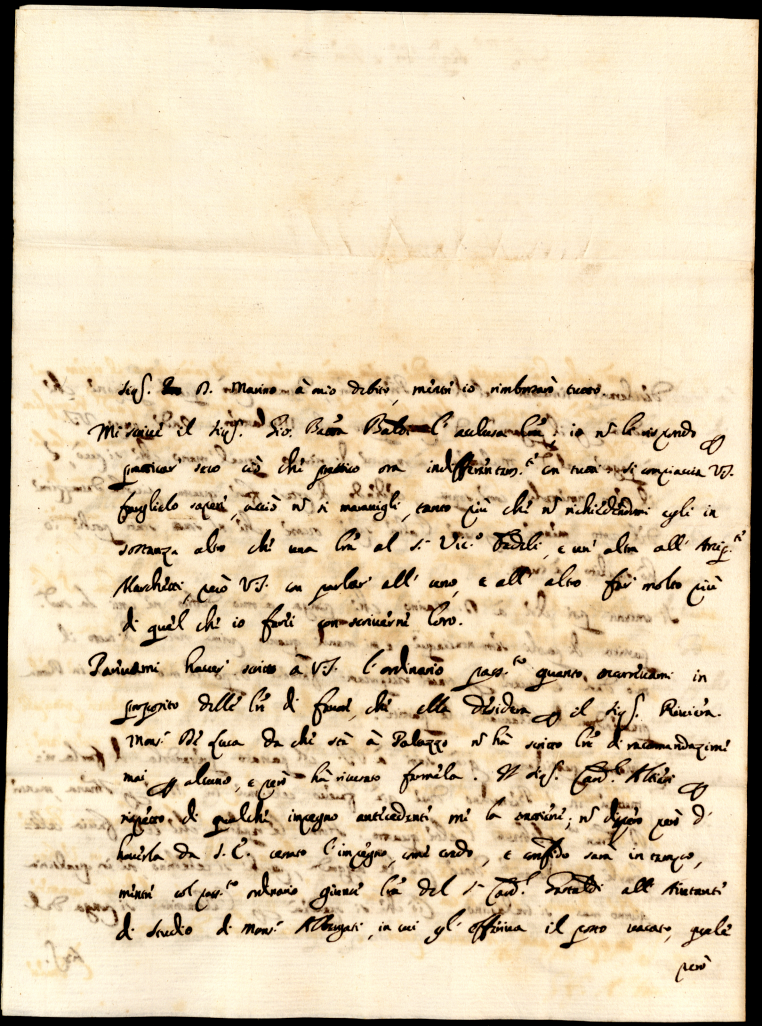 Sig.r D. Marino à mio debito, mentre io rimborsarò tutto.
Mi scrive il Sig.r Gio. Batta Baldi l'acclusa lra; io nō le rispondo p
praticar seco ciò che pratico ora indifferentem.te con tutti. Si compiaccia V.S.
farglielo sapere, acciò nō si maravigli, tanto più che nō richiedendomi egli in
sostanza altro che una lra al S.r Vic.o Fedeli, e un' altra all' Arcip.te
Marchetti, però V.S. con parlar all' uno, e all' altro farà molto più
di quel che io farei con scriverne loro.
Parevami haver scritto à V.S. l'ordinario pass.to quanto occorrevami in
proposito delle lre di favore, che ella desidera p il Sig.r Riviera.
Mons.r De Luca da che stà à Palazzo nō hà scritto lre di racomandazione
mai p alcuno, e però hà ricusato farmela. Il Sig.r Card.le Altieri p
rispetto di qualche impegno antecedente me la trattiene; nō dispero però d'
haverla da S.E. cessato l'impegno, come credo, e confido sarà in tempo,
mentre col pass.to ordinario giunse lra del S.r Card.l Gastaldi all' Aiutante
di Studio di Mons.r Albergati, in cui gl' offeriva il posto vacato, quale
però